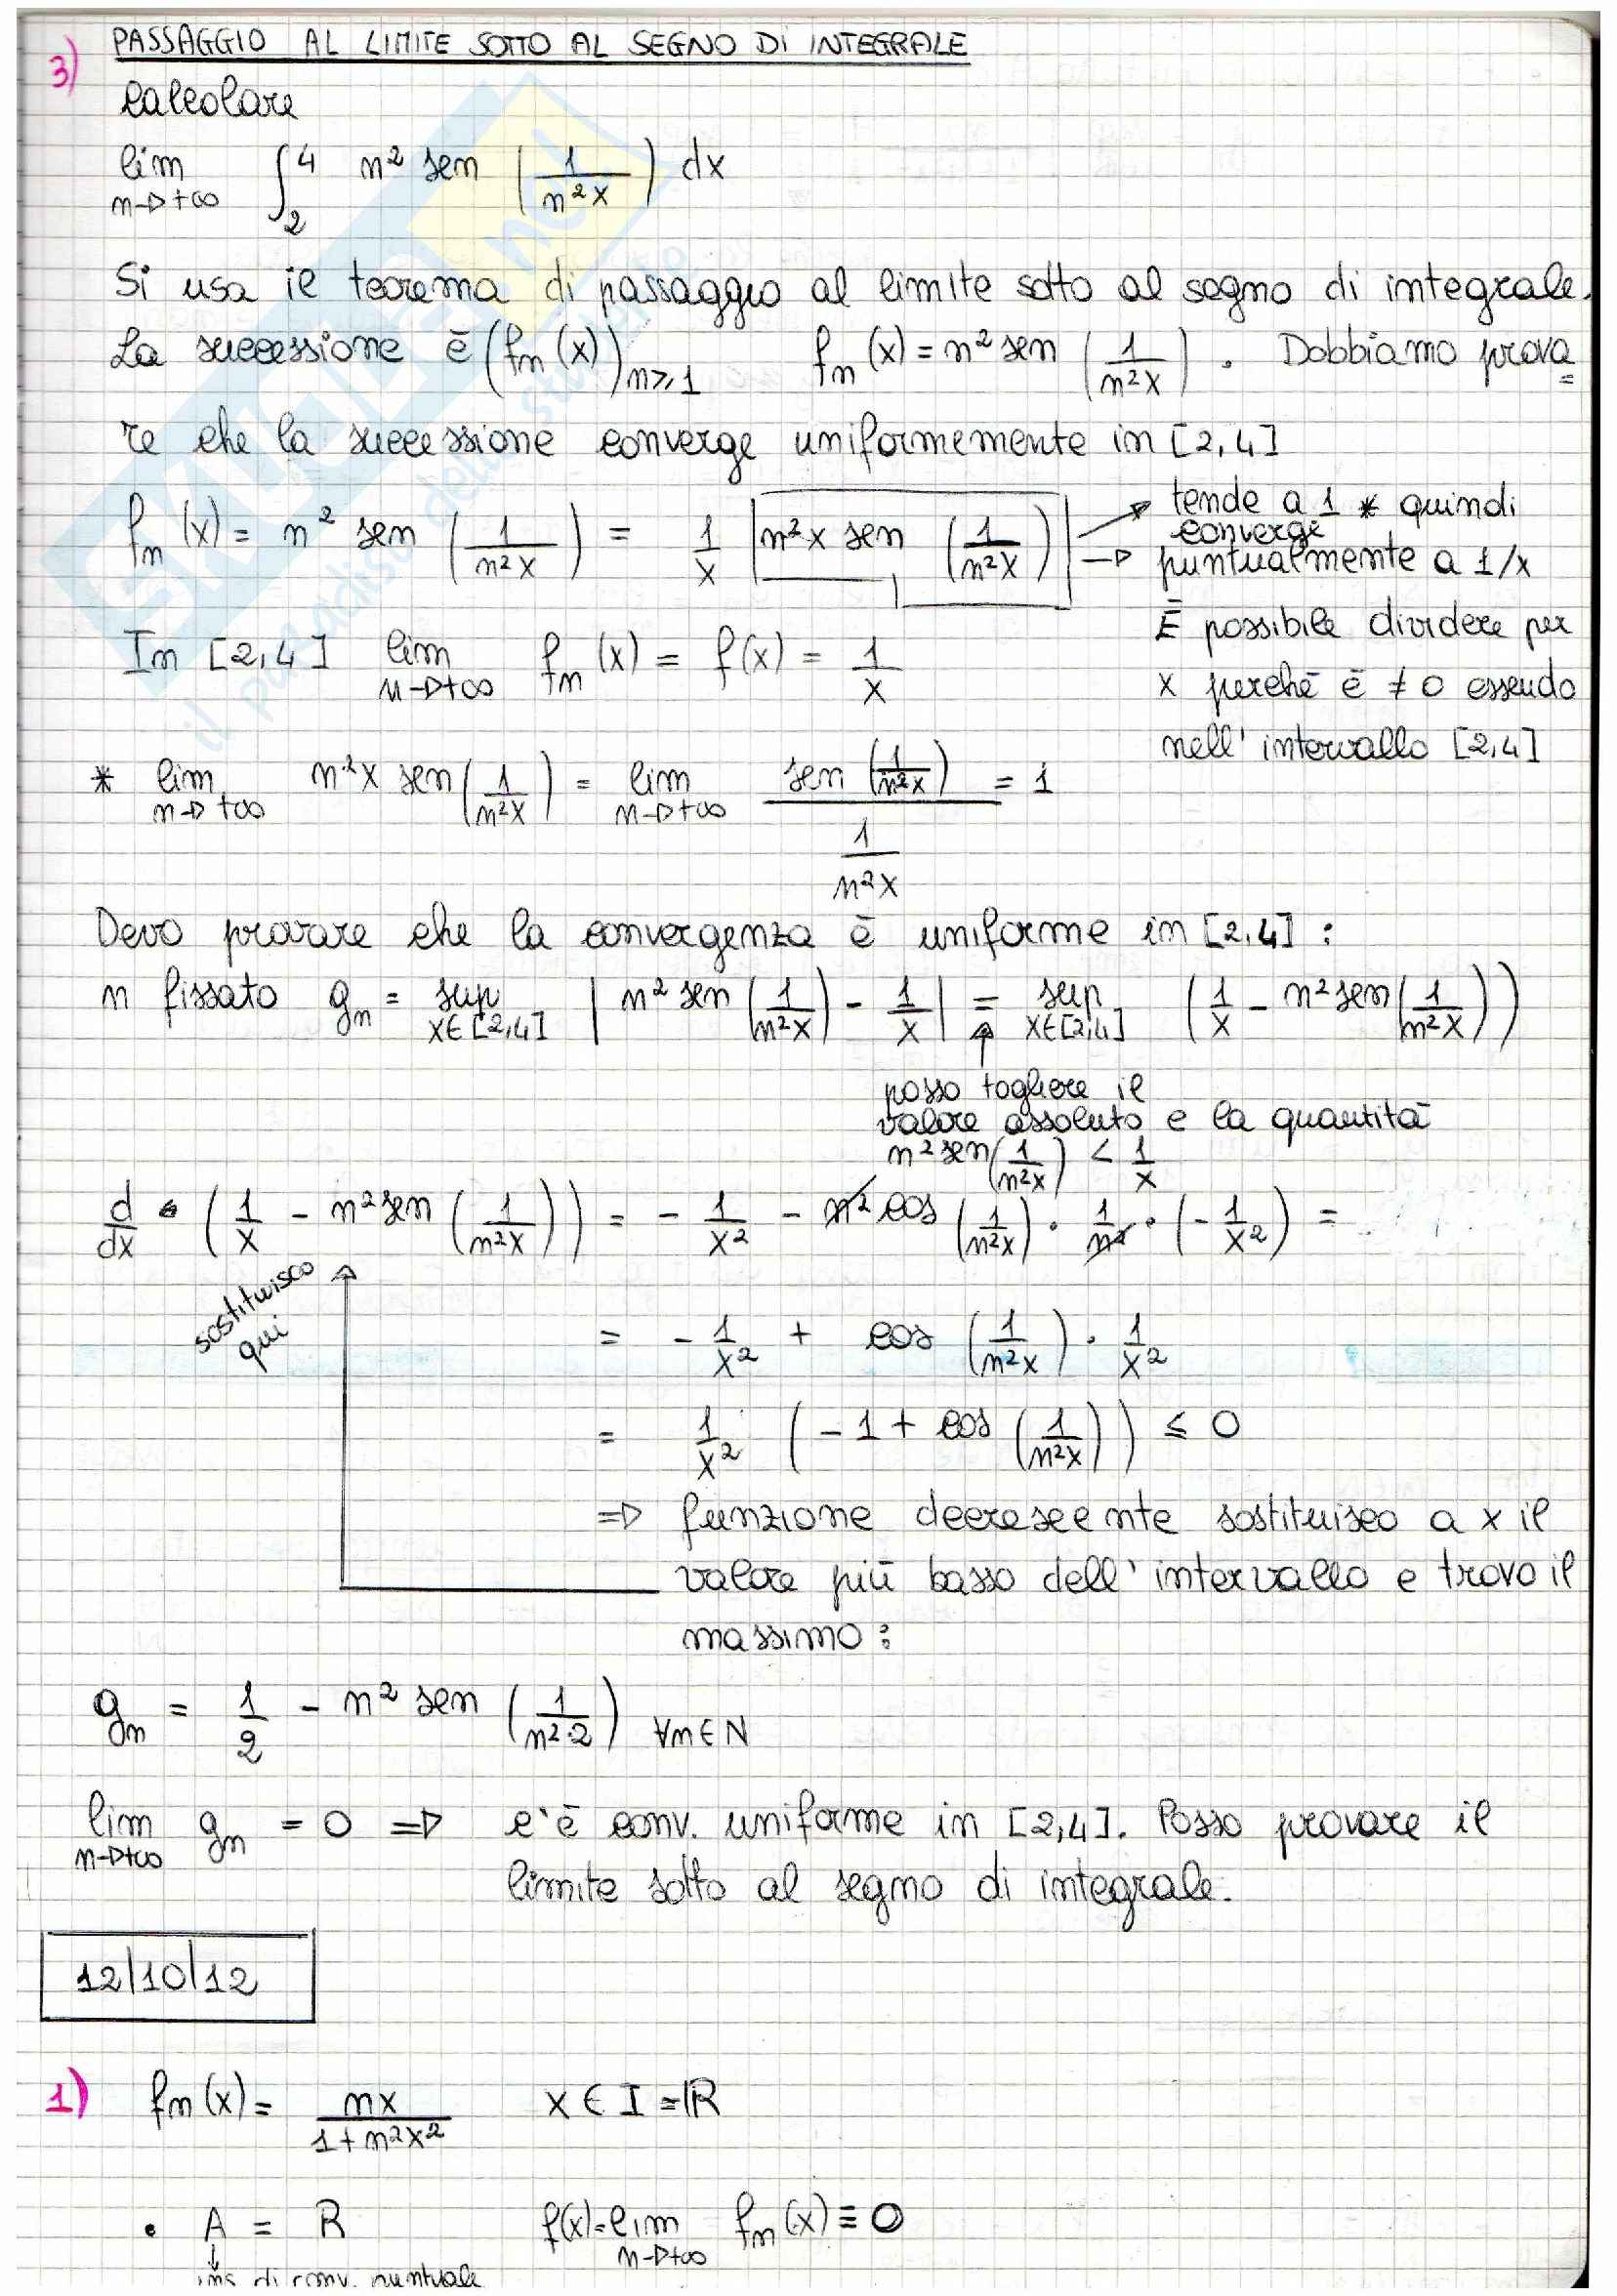 PASSAGGIO AL LIMITE SOTTO AL SEGNO DI INTEGRALE
3)
Calcolare
lim n→+∞ ∫₂⁴ n² sen (1/(n²x)) dx
Si usa il teorema di passaggio al limite sotto al segno di integrale.
La successione è (fn(x))n≥1 fn(x) = n² sen (1/(n²x)). Dobbiamo prova=
re che la successione converge uniformemente in [2,4]
fn(x) = n² sen (1/(n²x)) = 1/x [n²x sen (1/(n²x))] → tende a 1 * quindi
converge
→ puntualmente a 1/x
È possibile dividere per
In [2,4] lim n→+∞ fn(x) = f(x) = 1/x
x perché è ≠ 0 essendo
nell'intervallo [2,4]
* lim n→+∞ n²x sen (1/(n²x)) = lim n→+∞ sen(1/(n²x)) / (1/(n²x)) = 1
Devo provare che la convergenza è uniforme in [2,4] :
n fissato gn = sup x∈[2,4] | n² sen (1/(n²x)) - 1/x | = sup x∈[2,4] (1/x - n² sen (1/(n²x)))
posso togliere il
valore assoluto e la quantità
n² sen (1/(n²x)) < 1/x
d/dx (1/x - n² sen (1/(n²x))) = - 1/x² - n² cos (1/(n²x)) · 1/n² · (- 1/x²) =
sostituisco
qui
= - 1/x² + cos (1/(n²x)) · 1/x²
= 1/x² (-1 + cos (1/(n²x))) ≤ 0
⇒ funzione decrescente sostituisco a x il
valore più basso dell'intervallo e trovo il
massimo :
gn = 1/2 - n² sen (1/(n²·2)) ∀n∈N
lim n→+∞ gn = 0 ⇒ c'è conv. uniforme in [2,4]. Posso provare il
limite sotto al segno di integrale.
12/10/12
1) fn(x) = nx/(1+n²x²) x ∈ I = ℝ
• A = ℝ f(x) = lim n→+∞ fn(x) ≡ 0
↓
ins. di conv. puntuale
SKUOLA.net
il paradiso dello studente